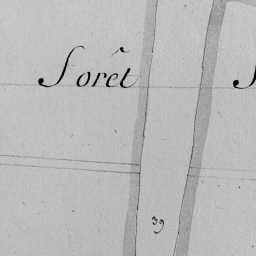 Forêt
39